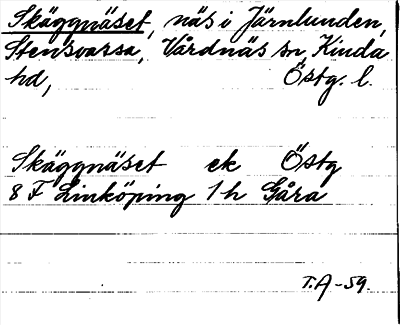 Skäggnäset, näs i Järnlunden,
Stensvassa, Vårdnäs sn Kinda
hd, Östg. l.
Skäggnäset ek Östg
8 F Linköping 1 h Gåra
T.A-59.